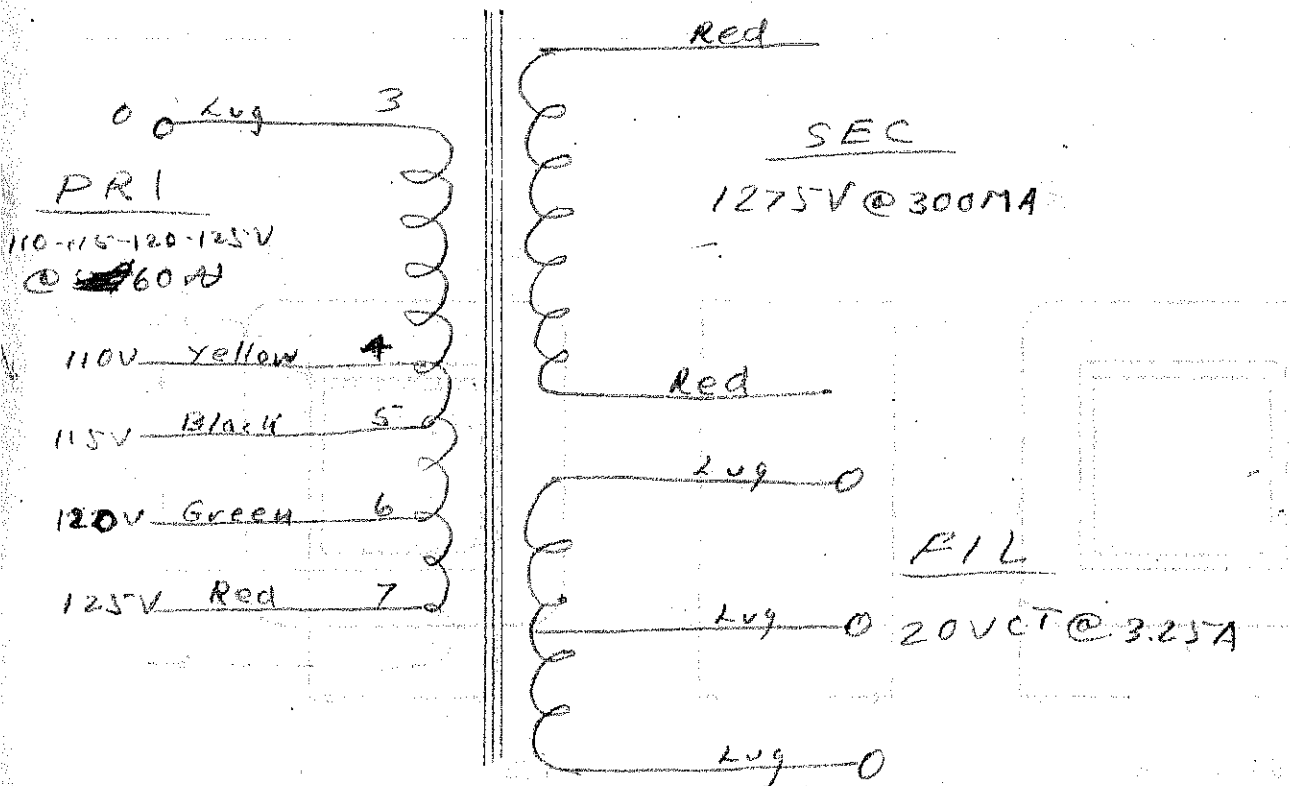 0 Lug 3
PRI
110-115-120-125V
@ 60
110V Yellow 4
115V Black 5
120V Green 6
125V Red 7
Red
SEC
1275V @ 300MA
Red
Lug
FIL
Lug 20VCT @ 3.25A
Lug